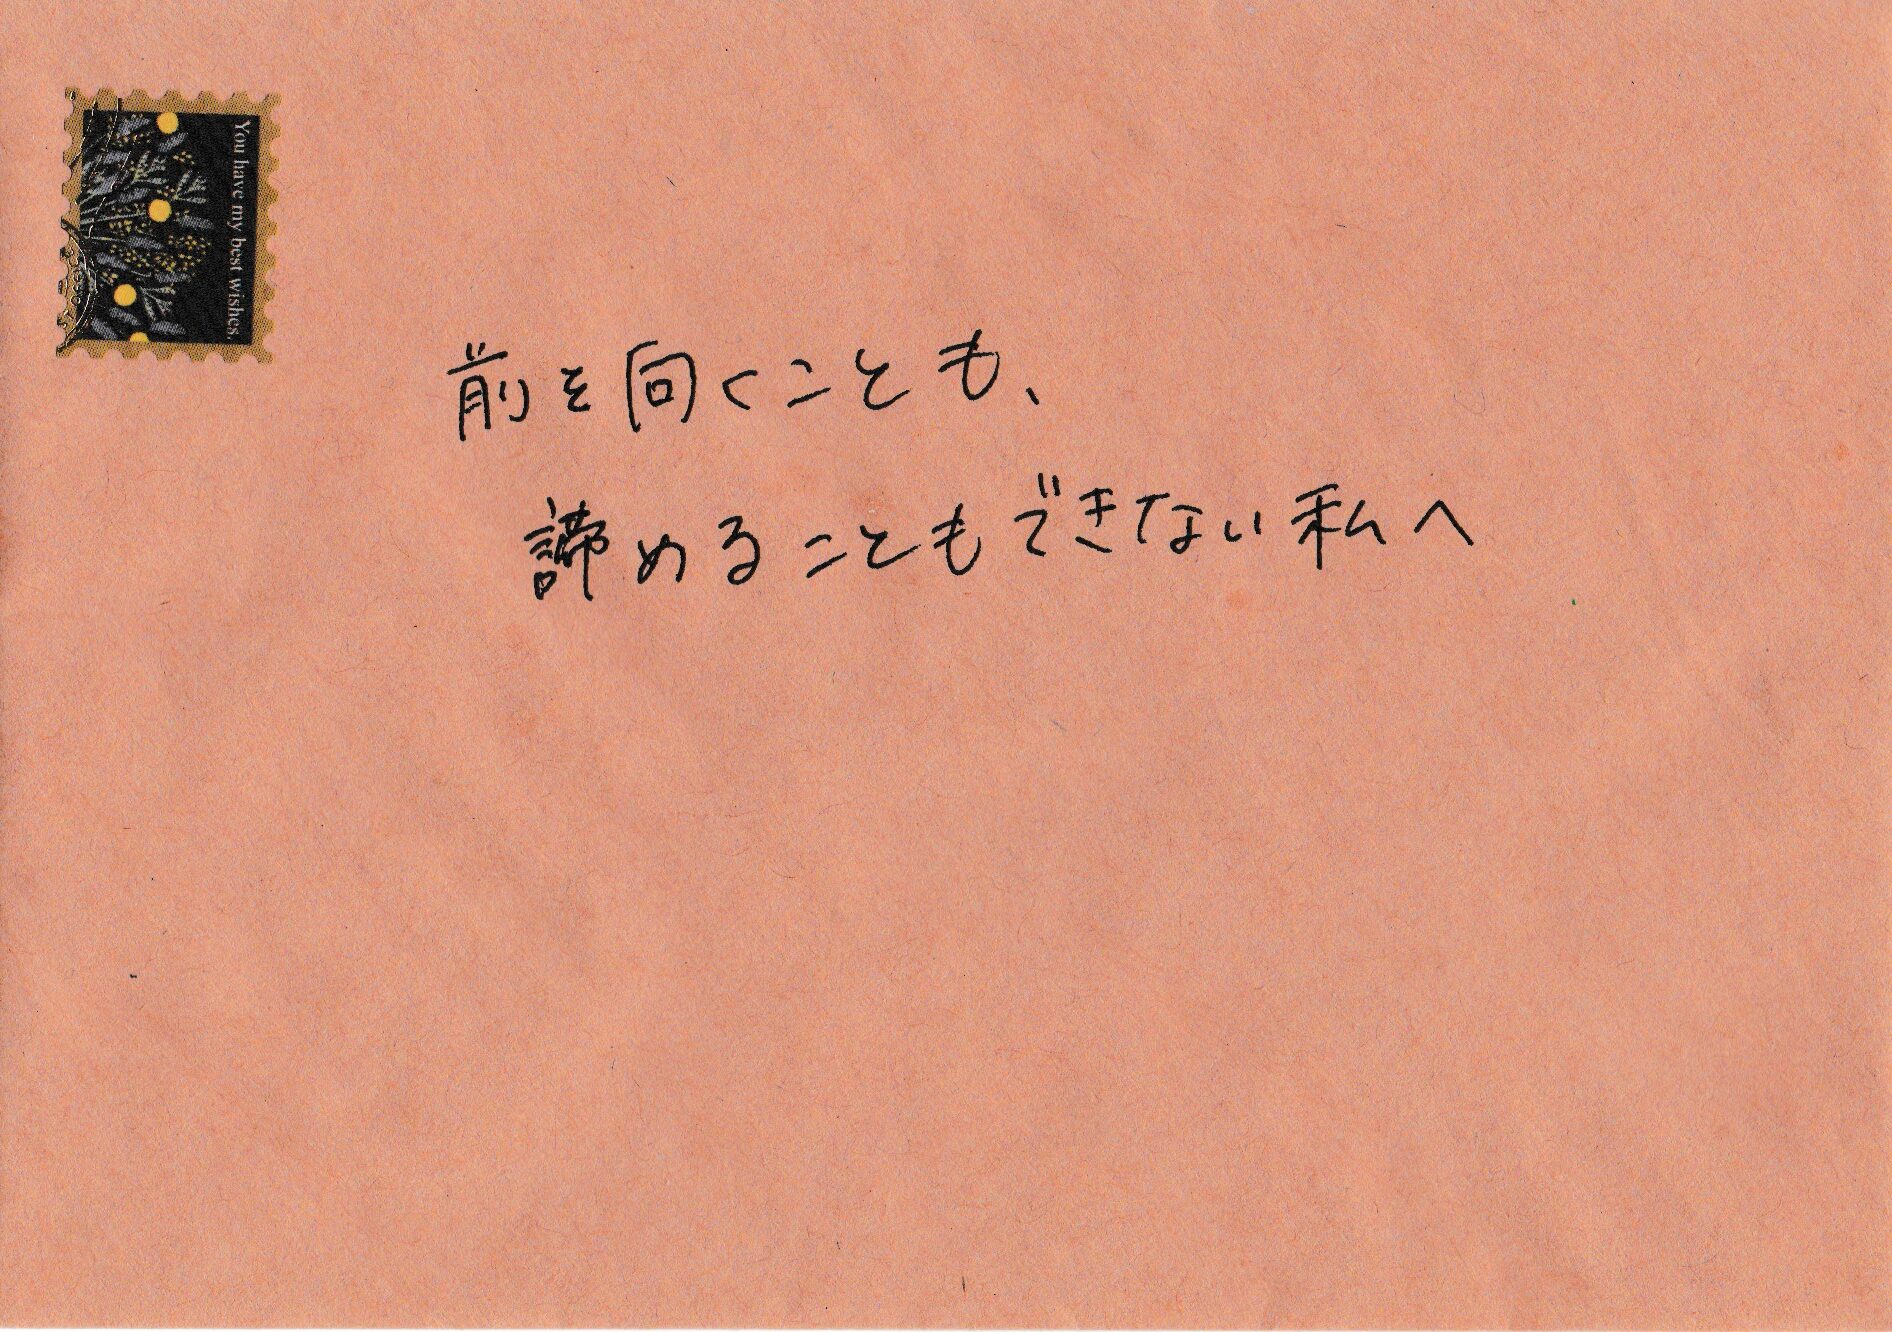 You have my best wishes.
前を向くことも、
諦めることもできない私へ